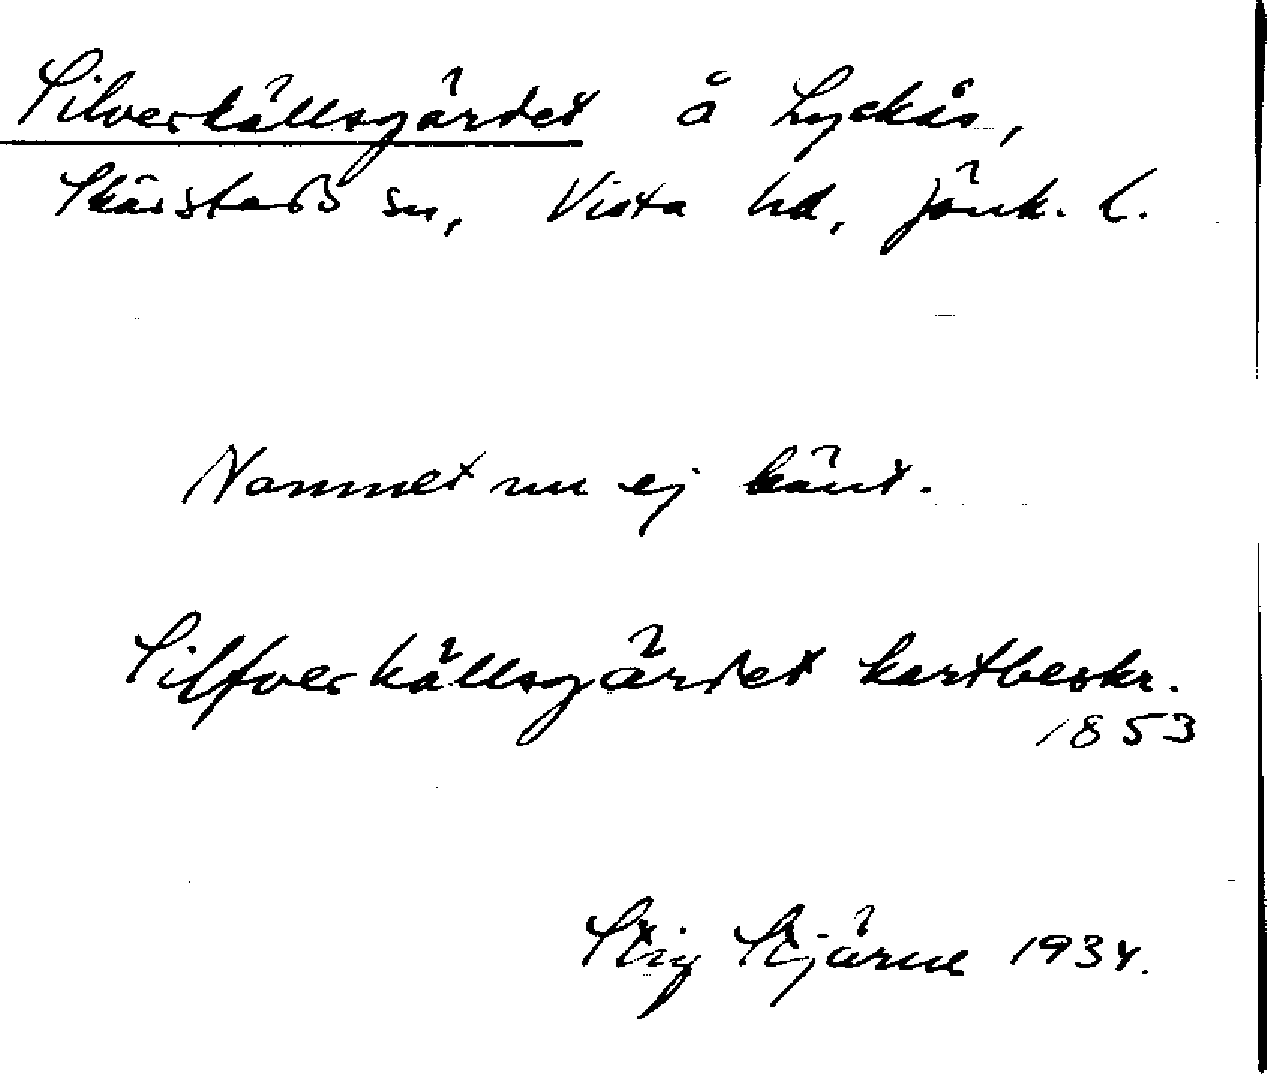 Silverkällsgärdet å Lyckås,
Skärstads sn, Vista hd, Jönk. l.
Namnet nu ej känt.
Silfverkällsgärdet kartbeskr.
1853
Stig Stjärne 1934.